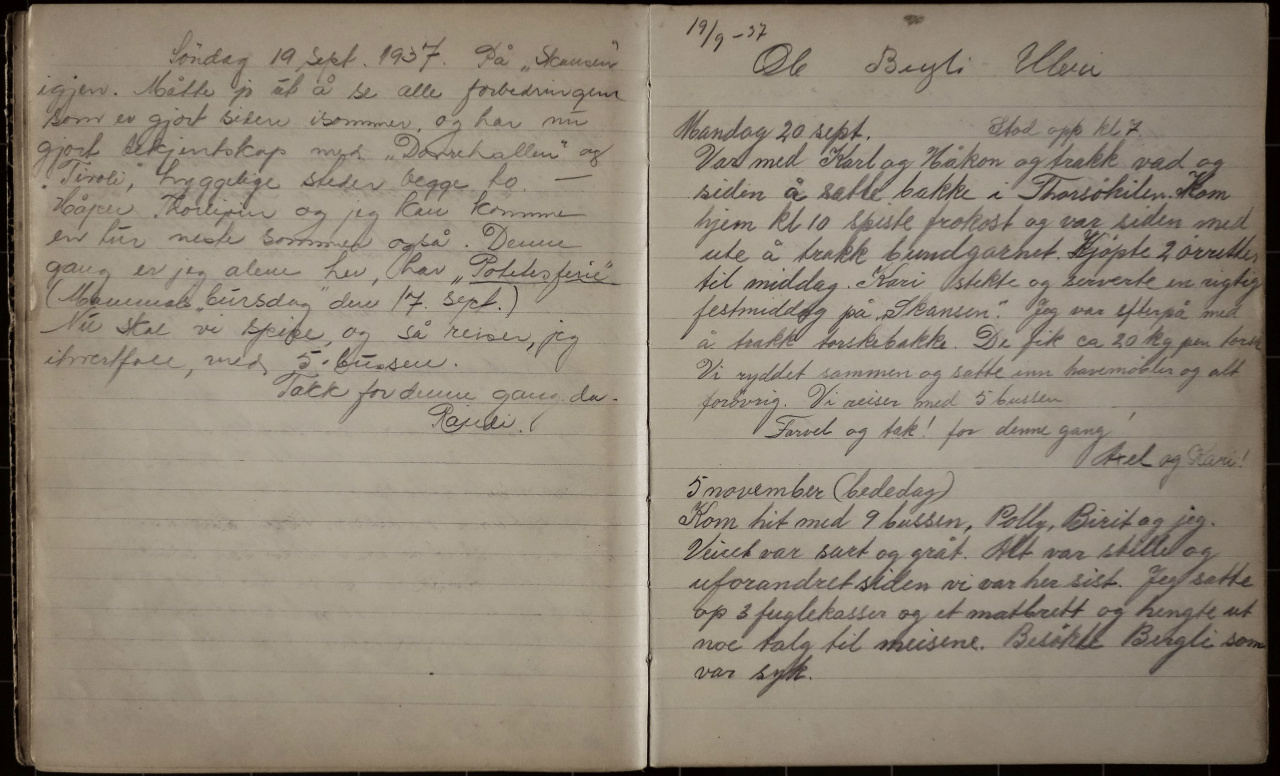 Søndag 19 Sept. 1937. På "Skansen"
igjen. Måtte jo ut å se alle forbedringene
som er gjort siden isommer, og har nu
gjort bekjentskap med "Dovrehallen" og
"Tivoli", hyggelige steder begge to. —
Håper Thorleif og jeg kan komme
en tur neste sommer også. Denne
gang er jeg alene her, har "Potetesferie"
(Mammas bursdag den 17. sept.)
Nu skal vi spise, og så reiser jeg
ihvertfall, med 5-bussen.
Takk for denne gang da.
19/9-37
Ole Bergli
Mandag 20 sept. Stod opp kl 7
Var med Karl og Håkon og trakk vad og
siden å satte bakke i Thorsøkilen. Kom
hjem kl 10 spiste frokost og var siden med
ute å trakk bundgarnet. Kjøpte 2 ørretter
til middag. Kari stekte og serverte en rigtig
festmiddag på "Skansen". Jeg var efterpå med
å trakk torskebakke. De fik ca 20 kg pen torsk
Vi ryddet sammen og satte inn havemøbler og alt
forøvrig. Vi reiser med 5 bussen
Farvel og tak! for denne gang!
Axel og Kari!
5 november (bededag)
Kom hit med 9 bussen, Polly, Birit og jeg.
Veiret var surt og gråt. Alt var stille og
uforandret siden vi var her sist. Jeg satte
op 3 fuglekasser og et matbrett og hengte ut
noe talg til meisene. Besøkte Bergli som
var syk.